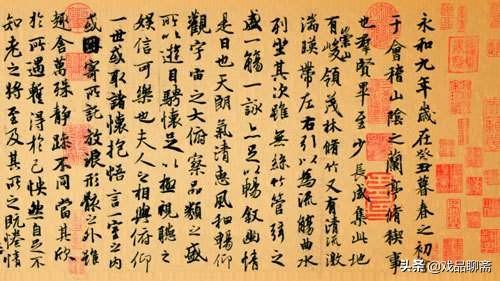 永和九年歲在癸丑暮春之初
于會稽山陰之蘭亭脩稧事
也羣賢畢至少長咸集此地
有崇山峻領茂林脩竹又有清流激
湍暎帶左右引以為流觴曲水
列坐其次雖無絲竹管弦之
盛一觴一詠亦足以暢叙幽情
是日也天朗氣清惠風和暢仰
觀宇宙之大俯察品類之盛
所以遊目騁懷足以極視聽之
娛信可樂也夫人之相與俯仰
一世或取諸懷抱悟言一室之內
或因寄所託放浪形骸之外雖
趣舍萬殊靜躁不同當其欣
於所遇暫得於己怏然自足不
知老之將至及其所之既惓情
头条 @戏品聊斋